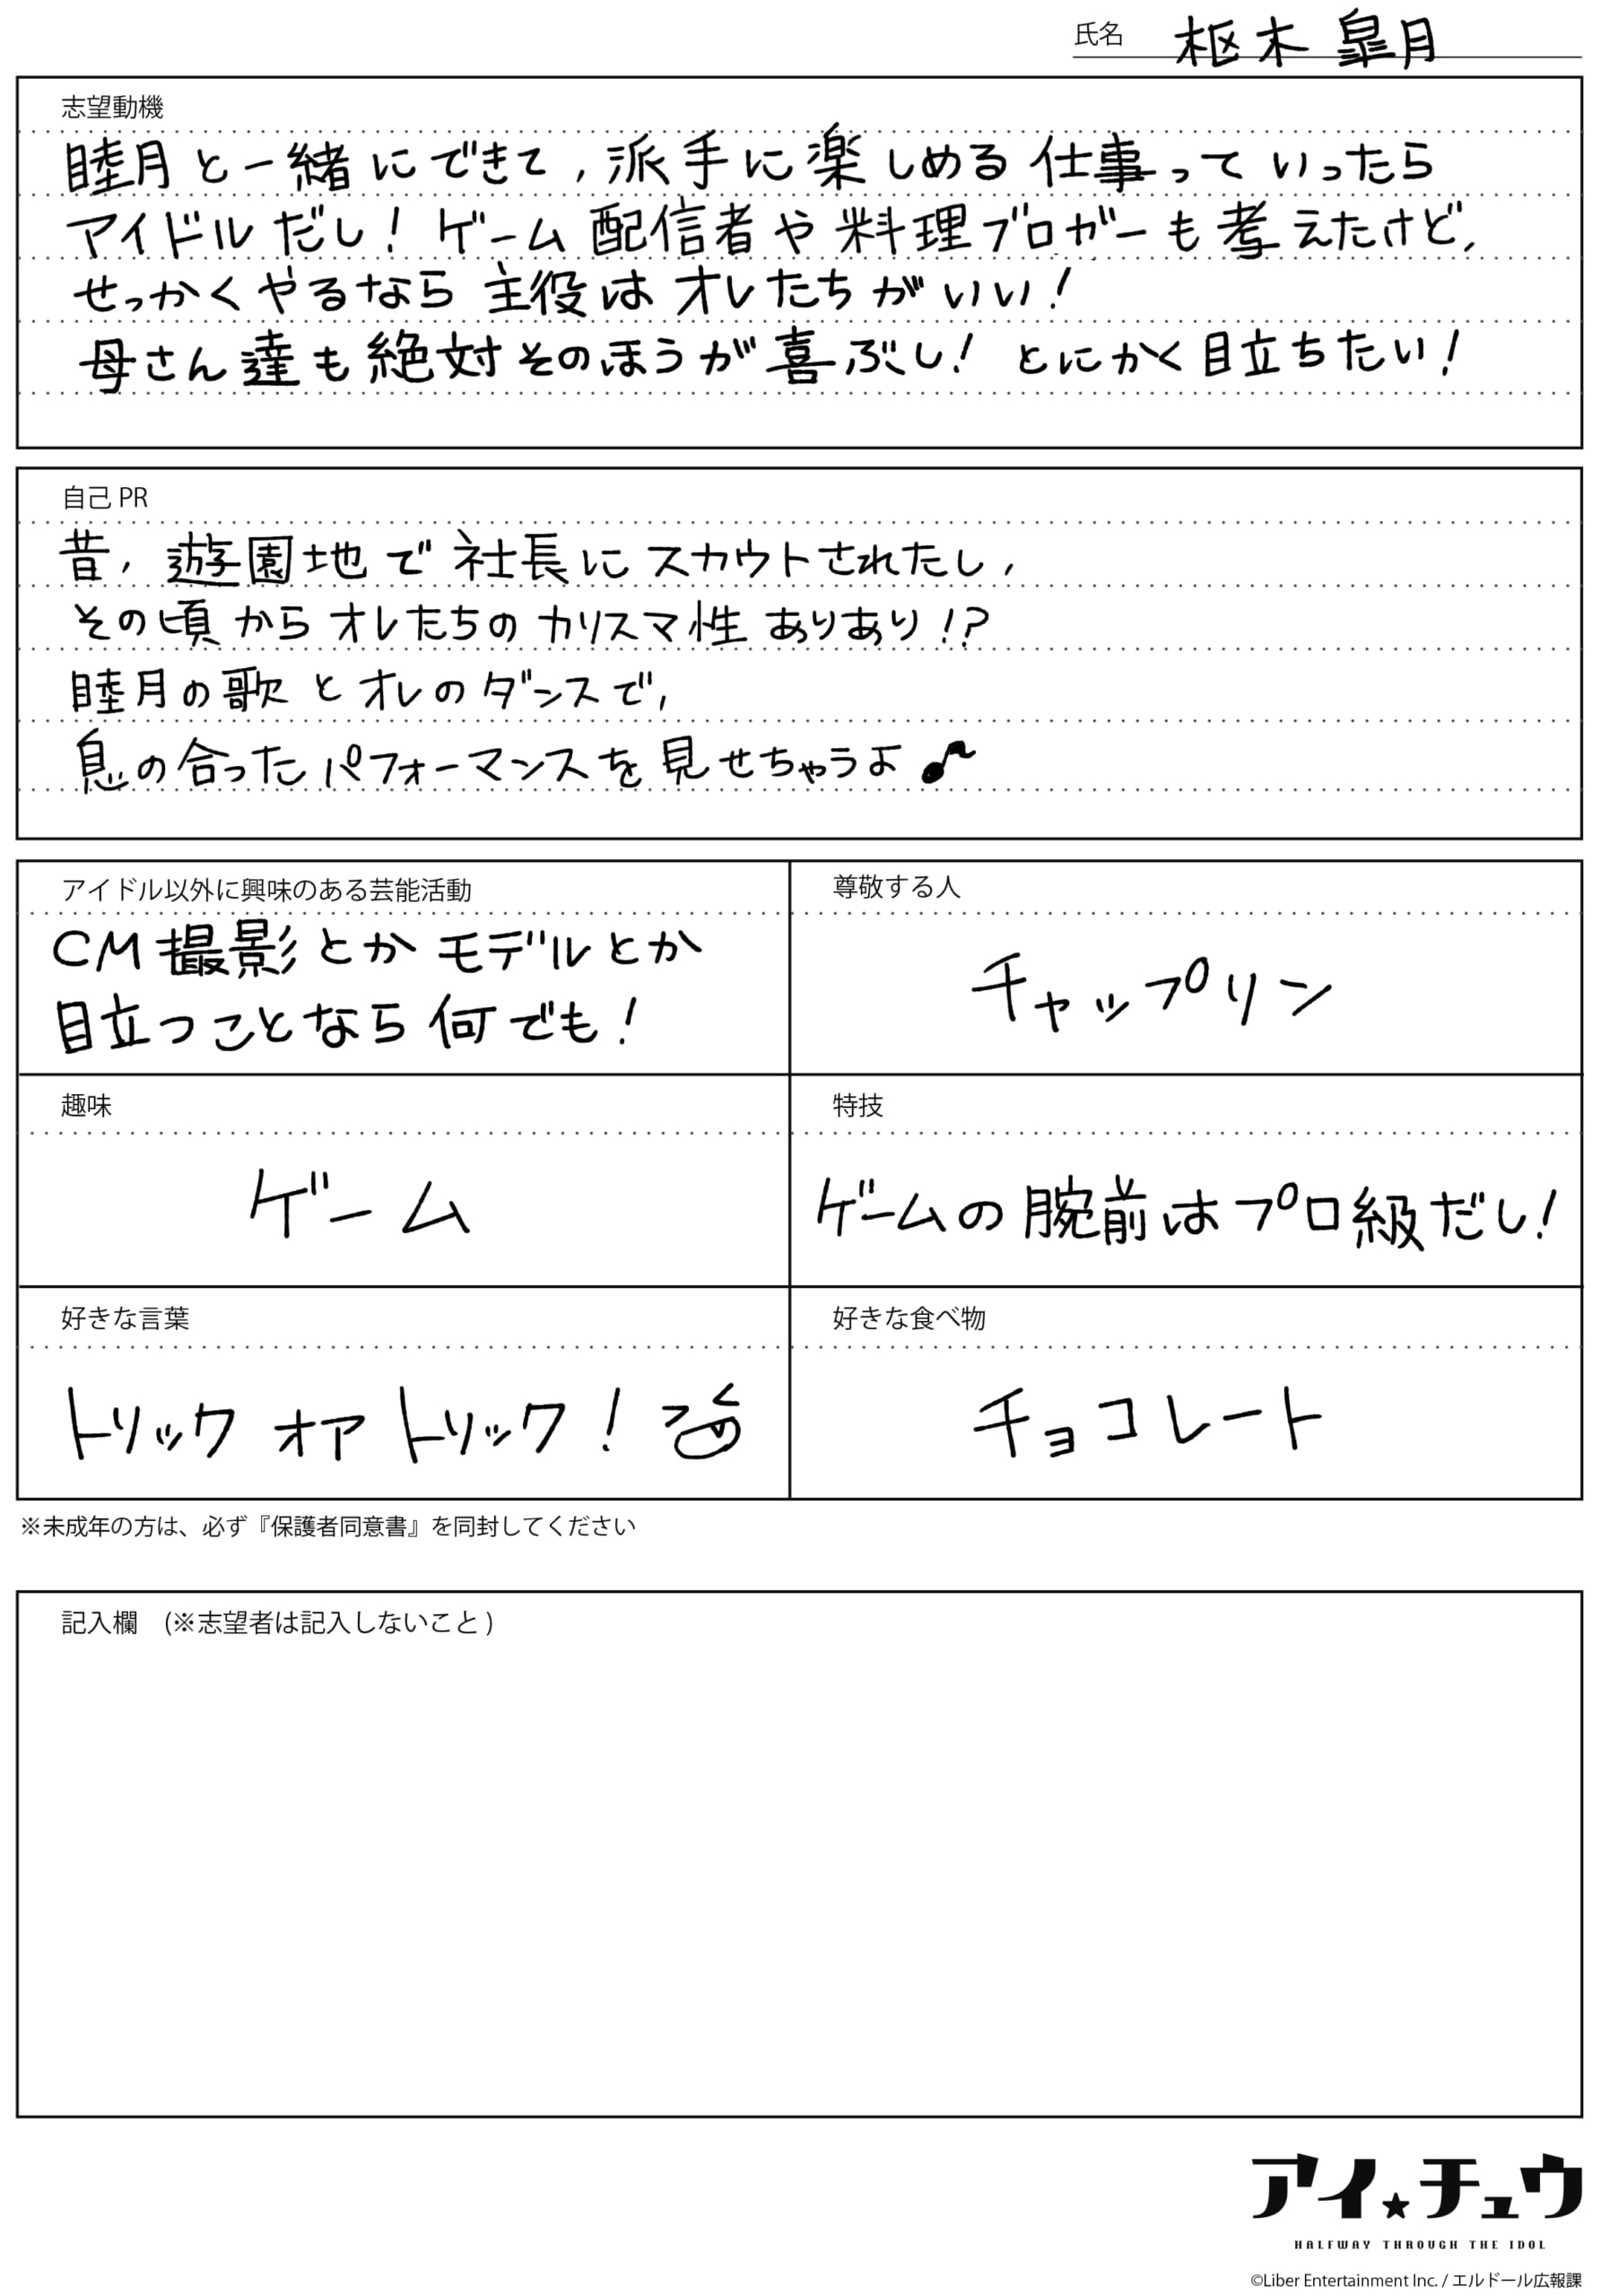 氏名 枢木 皐月
志望動機
睦月と一緒にできて，派手に楽しめる仕事っていったら
アイドルだし！ゲーム配信者や料理ブロガーも考えたけど，
せっかくやるなら主役はオレたちがいい！
母さん達も絶対そのほうが喜ぶし！とにかく目立ちたい！
自己 PR
昔，遊園地で社長にスカウトされたし，
その頃からオレたちのカリスマ性ありあり！？
睦月の歌とオレのダンスで，
息の合ったパフォーマンスを見せちゃうよ♪
アイドル以外に興味のある芸能活動
CM撮影とかモデルとか
目立つことなら何でも！
尊敬する人
チャップリン
趣味
ゲーム
特技
ゲームの腕前はプロ級だし！
好きな言葉
トリック オア トリック！
好きな食べ物
チョコレート
※未成年の方は、必ず『保護者同意書』を同封してください
記入欄 (※志望者は記入しないこと)
アイ★チュウ
HALFWAY THROUGH THE IDOL
©Liber Entertainment Inc. / エルドール広報課